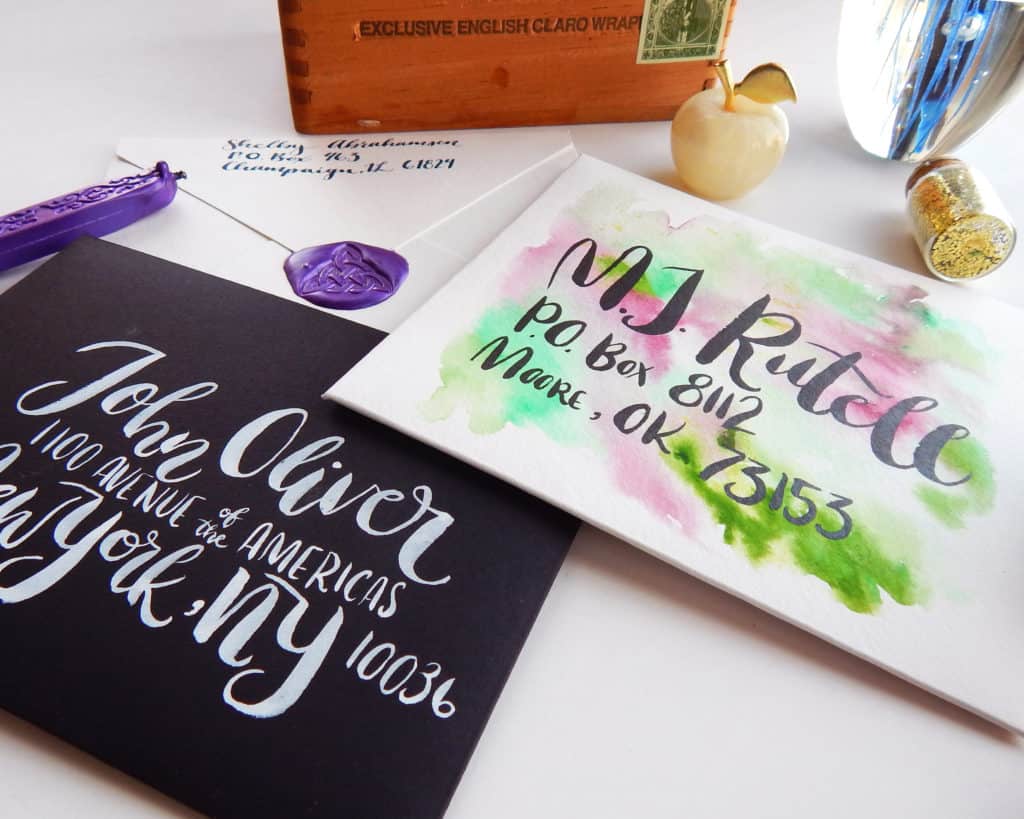 EXCLUSIVE ENGLISH CLARO WRAP
Shelby Abrahamson
P.O. Box 763
Champaign, IL 61824
M.J. Rutell
P.O. Box 8112
Moore, OK 73153
John Oliver
1100 AVENUE of the AMERICAS
New York, NY 10036